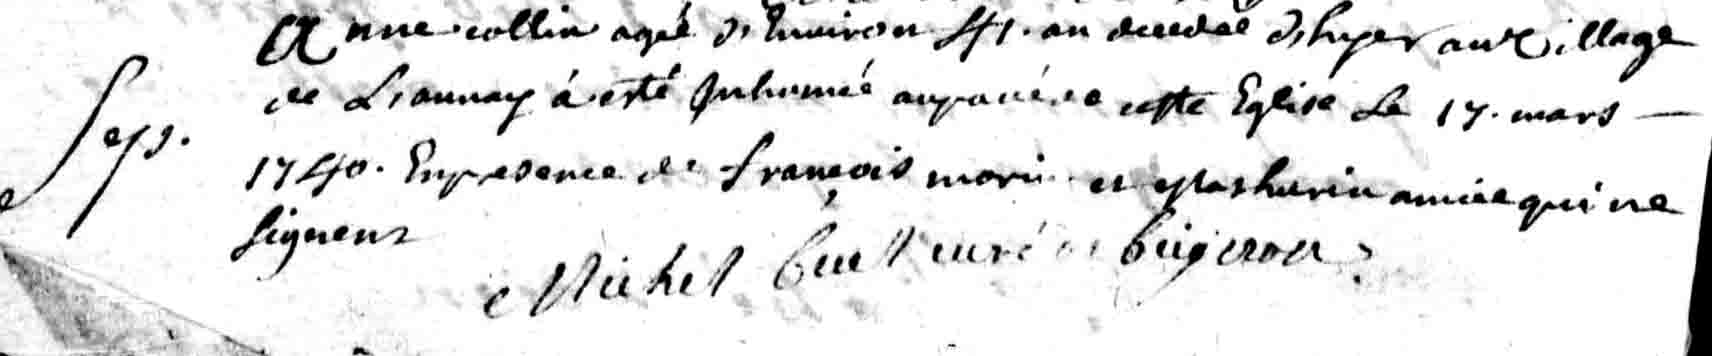 Anne collin agé d'Environ 41. an decedée d'hyer au village
de Launay à esté Inhumée au pavé de cette Eglise Le 17. mars
Seps.
1740. En presence de françois morin et Mathurin amice qui ne
signent
Michel curé